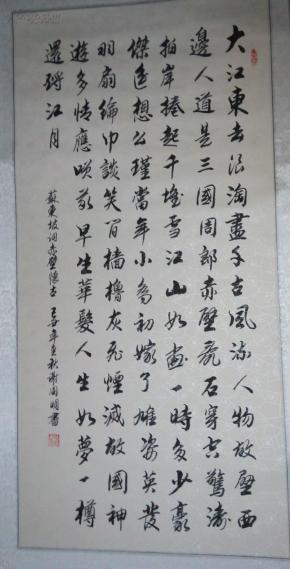 大江東去浪淘盡千古風流人物故壘西
邊人道是三國周郎赤壁亂石穿空驚濤
拍岸捲起千堆雪江山如畫一時多少豪
傑遥想公瑾當年小喬初嫁了雄姿英發
羽扇綸巾談笑間檣櫓灰飛煙滅故國神
遊多情應笑我早生華髮人生如夢一樽
還酹江月
蘇東坡詞赤壁懷古 年孟秋謝周明書